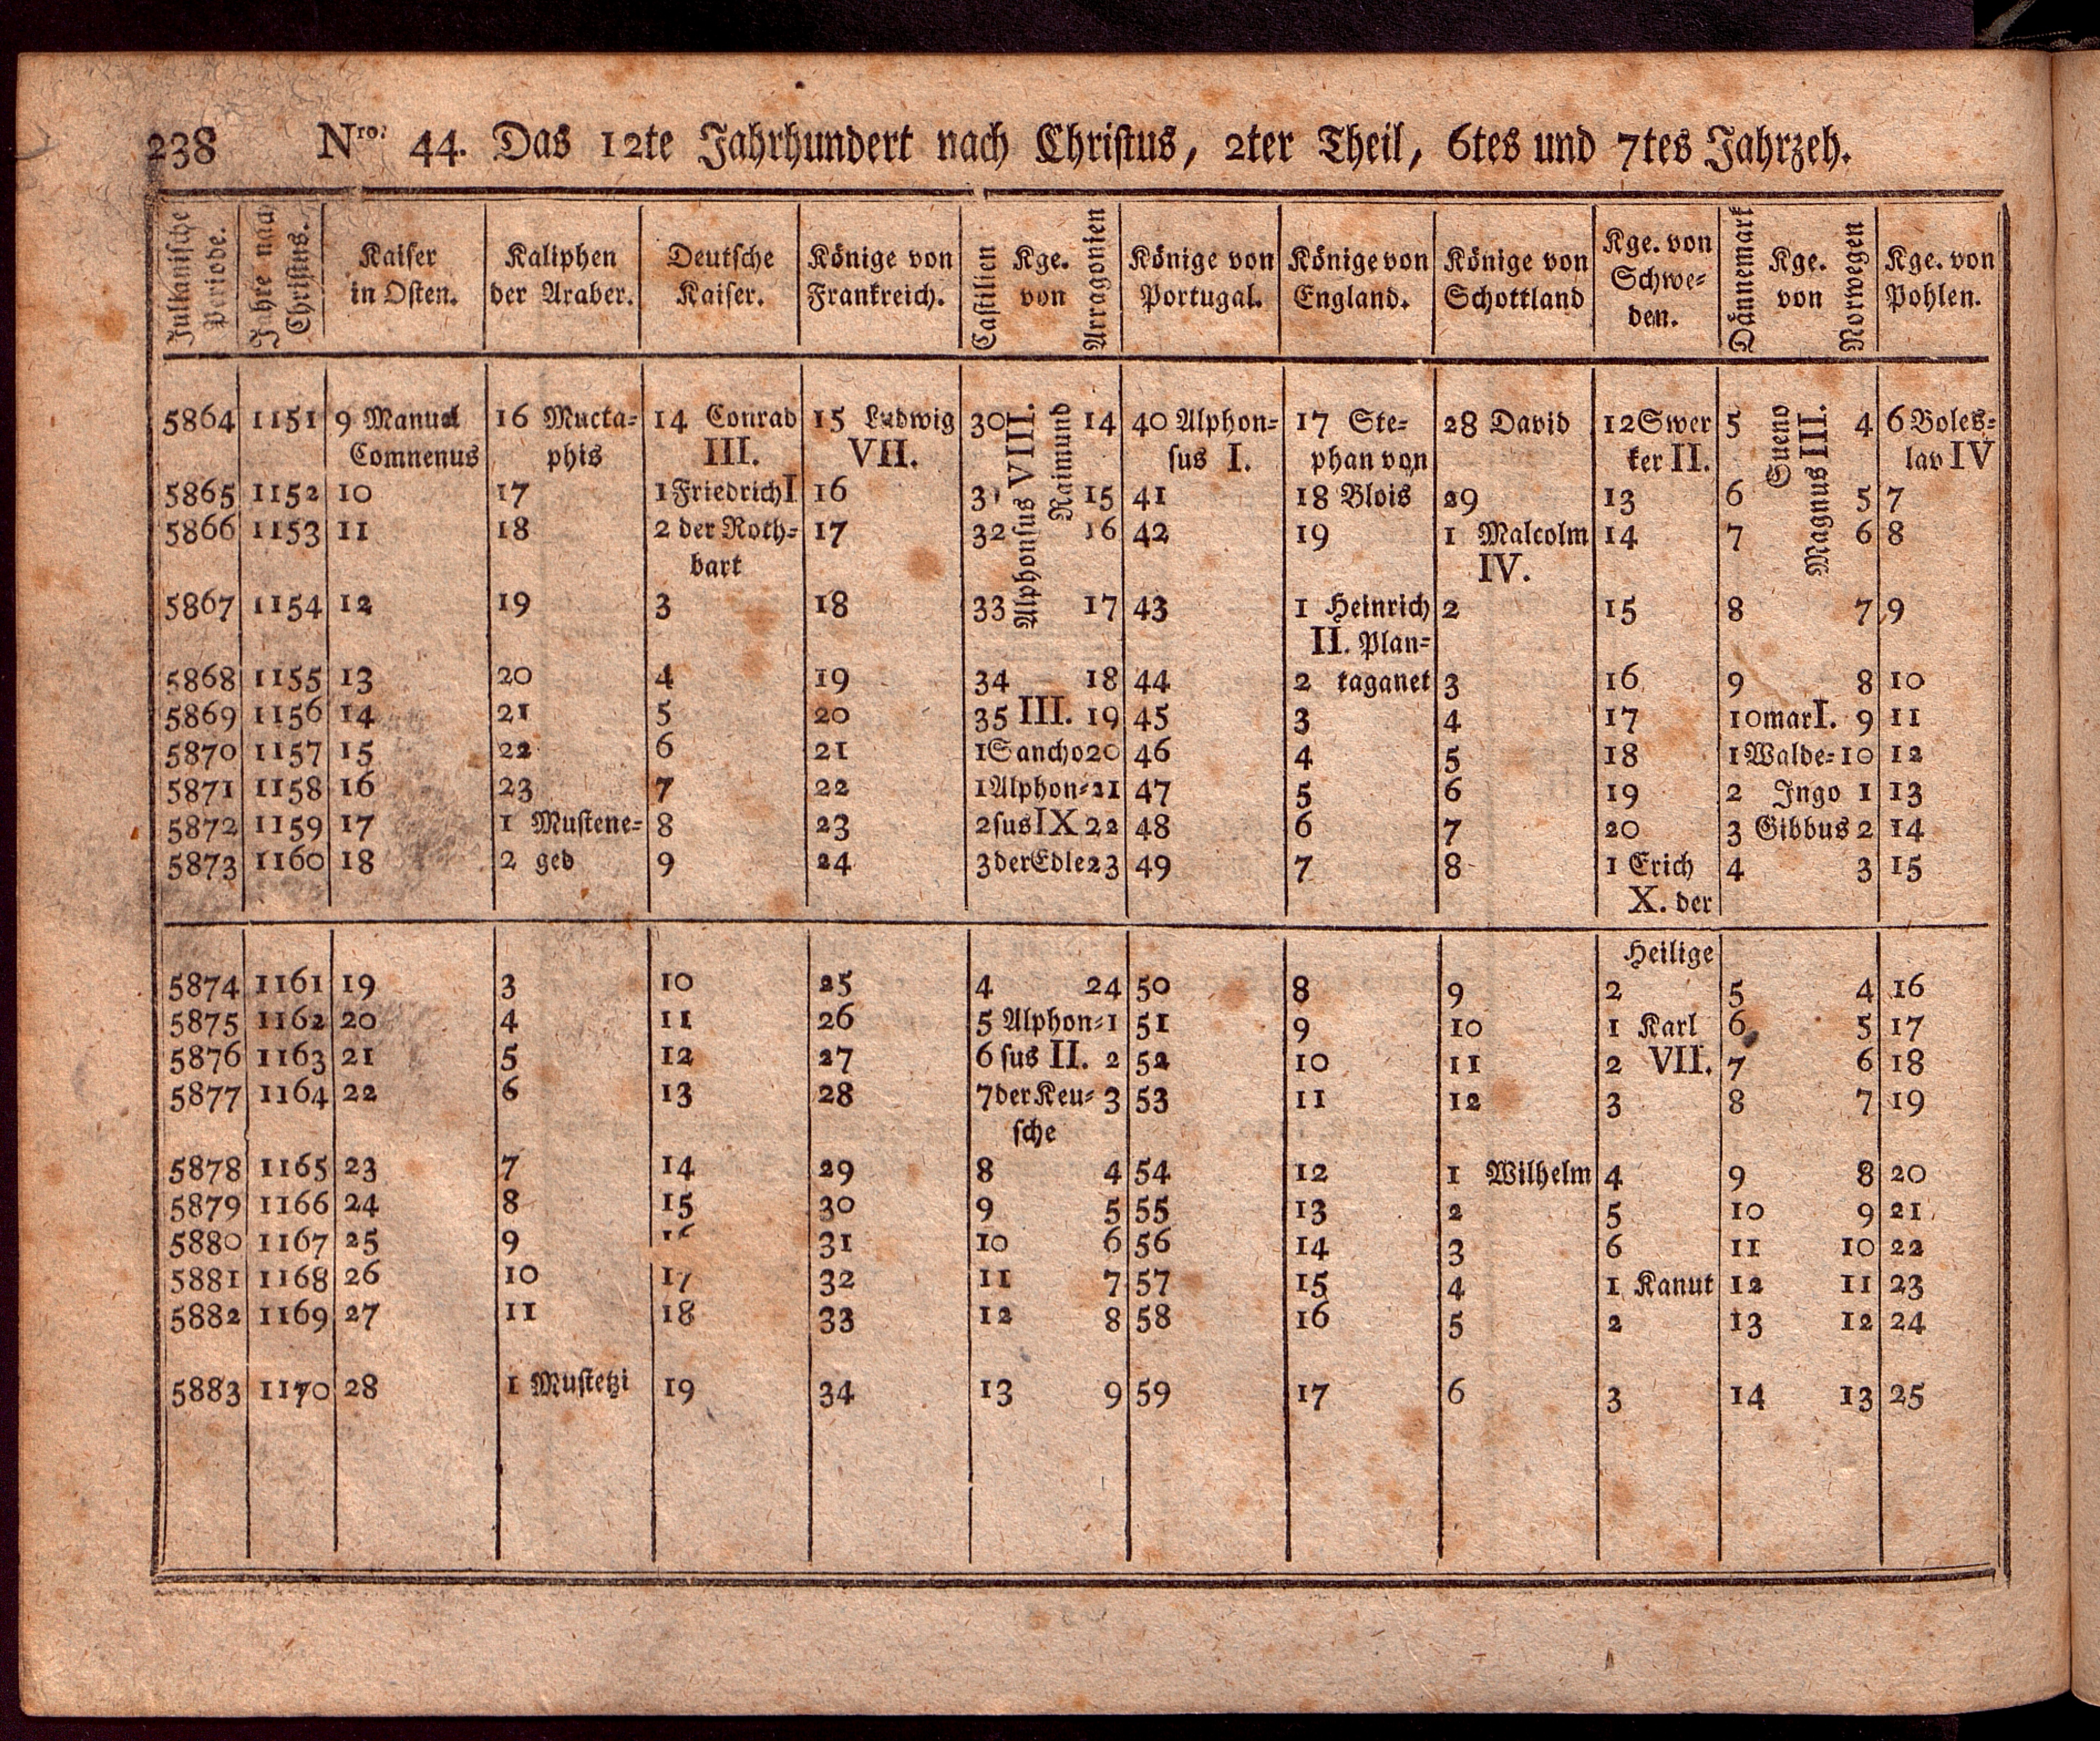 238 Nro: 44. Das 12te Jahrhundert nach Christus, 2ter Theil, 6tes und 7tes Jahrzeh.
Julianische Periode. | Jahre nach Christus. | Kaiser in Osten. | Kaliphen der Araber. | Deutsche Kaiser. | Könige von Frankreich. | Castilien Kge. von Arragonien | Könige von Portugal. | Könige von England. | Könige von Schottland | Kge. von Schwe= den. | Dännemark Kge. von Norwegen | Kge. von Pohlen.
5864 1151 9 Manuel 16 Mucta= 14 Conrad 15 Ludwig 30 Alphonsus VIII. Raimund 14 40 Alphon= 17 Ste= 28 David 12 Swer 5 Sueno Magnus III. 4 6 Boles=
Comnenus phis III. VII. sus I. phan von ker II. lav IV
5865 1152 10 17 1 Friedrich I 16 31 15 41 18 Blois 29 13 6 5 7
5866 1153 11 18 2 der Roth= 17 32 16 42 19 1 Malcolm 14 7 6 8
bart IV.
5867 1154 12 19 3 18 33 17 43 1 Heinrich 2 15 8 7 9
II. Plan=
5868 1155 13 20 4 19 34 18 44 2 taganet 3 16 9 8 10
5869 1156 14 21 5 20 35 III. 19 45 3 4 17 10 mar I. 9 11
5870 1157 15 22 6 21 1 Sancho 20 46 4 5 18 1 Walde= 10 12
5871 1158 16 23 7 22 1 Alphon= 21 47 5 6 19 2 Ingo 1 13
5872 1159 17 1 Mustene= 8 23 2 sus IX 22 48 6 7 20 3 Gibbus 2 14
5873 1160 18 2 ged 9 24 3 der Edle 23 49 7 8 1 Erich 4 3 15
X. der
Heilige
5874 1161 19 3 10 25 4 24 50 8 9 2 5 4 16
5875 1162 20 4 11 26 5 Alphon= 1 51 9 10 1 Karl 6 5 17
5876 1163 21 5 12 27 6 sus II. 2 52 10 11 2 VII. 7 6 18
5877 1164 22 6 13 28 7 der Keu= 3 53 11 12 3 8 7 19
sche
5878 1165 23 7 14 29 8 4 54 12 1 Wilhelm 4 9 8 20
5879 1166 24 8 15 30 9 5 55 13 2 5 10 9 21
5880 1167 25 9 16 31 10 6 56 14 3 6 11 10 22
5881 1168 26 10 17 32 11 7 57 15 4 1 Kanut 12 11 23
5882 1169 27 11 18 33 12 8 58 16 5 2 13 12 24
5883 1170 28 1 Mustetzi 19 34 13 9 59 17 6 3 14 13 25